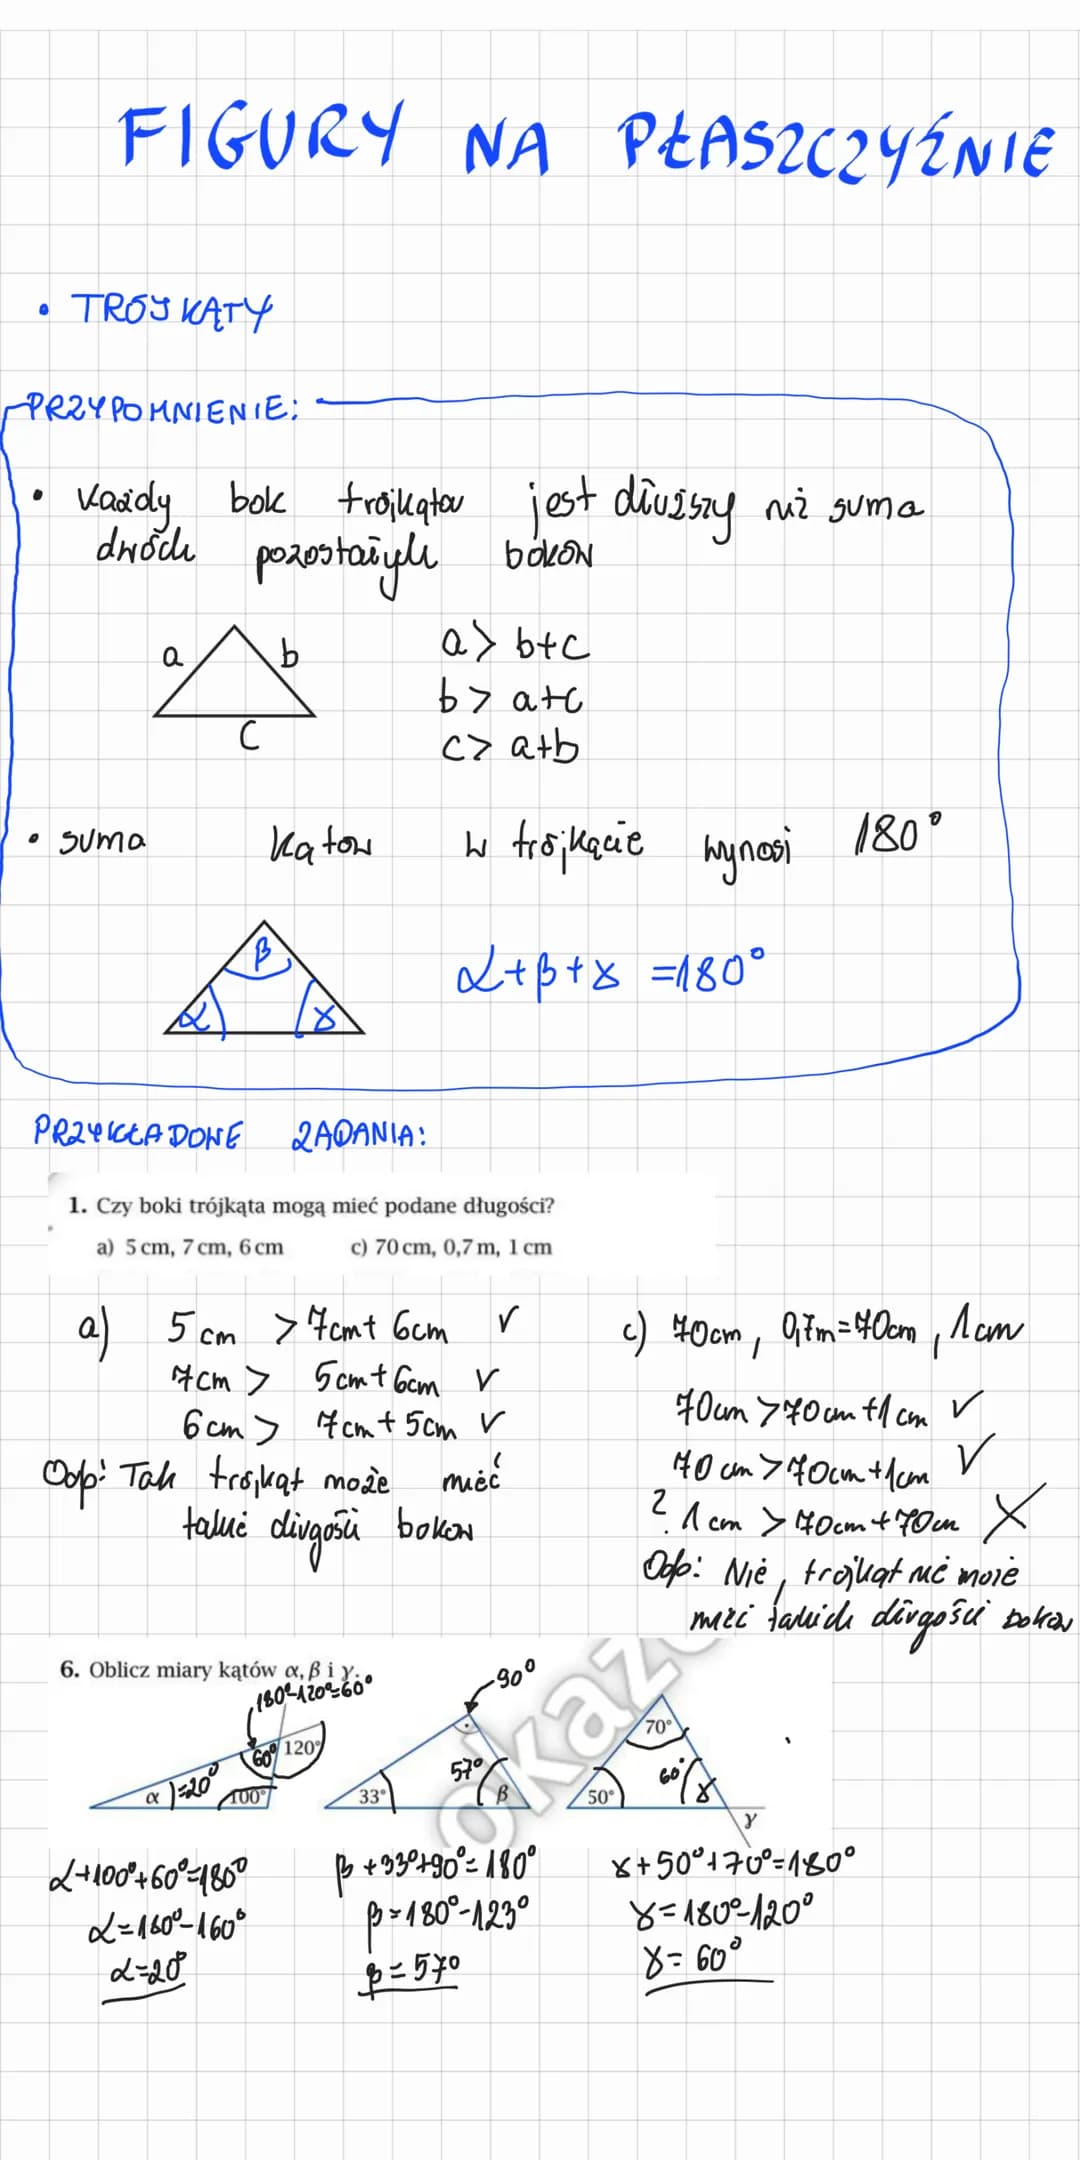 FIGURY NA PŁASZCZYŹNIE
• TRÓJKĄTY
PRZYPOMNIENIE:
• Każdy bok trójkąta jest dłuższy niż suma
dwóch pozostałych boków
a b
c
a > b+c
b > a+c
c > a+b
• suma kątów w trójkącie wynosi 180°
β
α γ
α+β+γ =180°
PRZYKŁADOWE ZADANIA:
1. Czy boki trójkąta mogą mieć podane długości?
a) 5 cm, 7 cm, 6 cm c) 70 cm, 0,7 m, 1 cm
a) 5 cm > 7cm+ 6cm ✓
7cm > 5cm+6cm ✓
6cm > 7cm+5cm ✓
Odp: Tak trójkąt może mieć
takie długości boków
c) 70cm, 0,7m=70cm, 1cm
70cm >70cm+1cm ✓
70cm>70cm+1cm ✓
? 1cm > 70cm+70cm ✗
Odp: Nie, trójkąt nie może
mieć takich długości boków
6. Oblicz miary kątów α, β i γ.
180°-120°=60°
60° 120°
α =20° 100°
90°
57°
33° β
70°
60°
50° γ
γ
okaz
α+100°+60°=180°
α=180°-160°
α=20°
β+33°+90°=180°
β=180°-123°
β=57°
γ+50°+70°=180°
γ=180°-120°
γ=60°